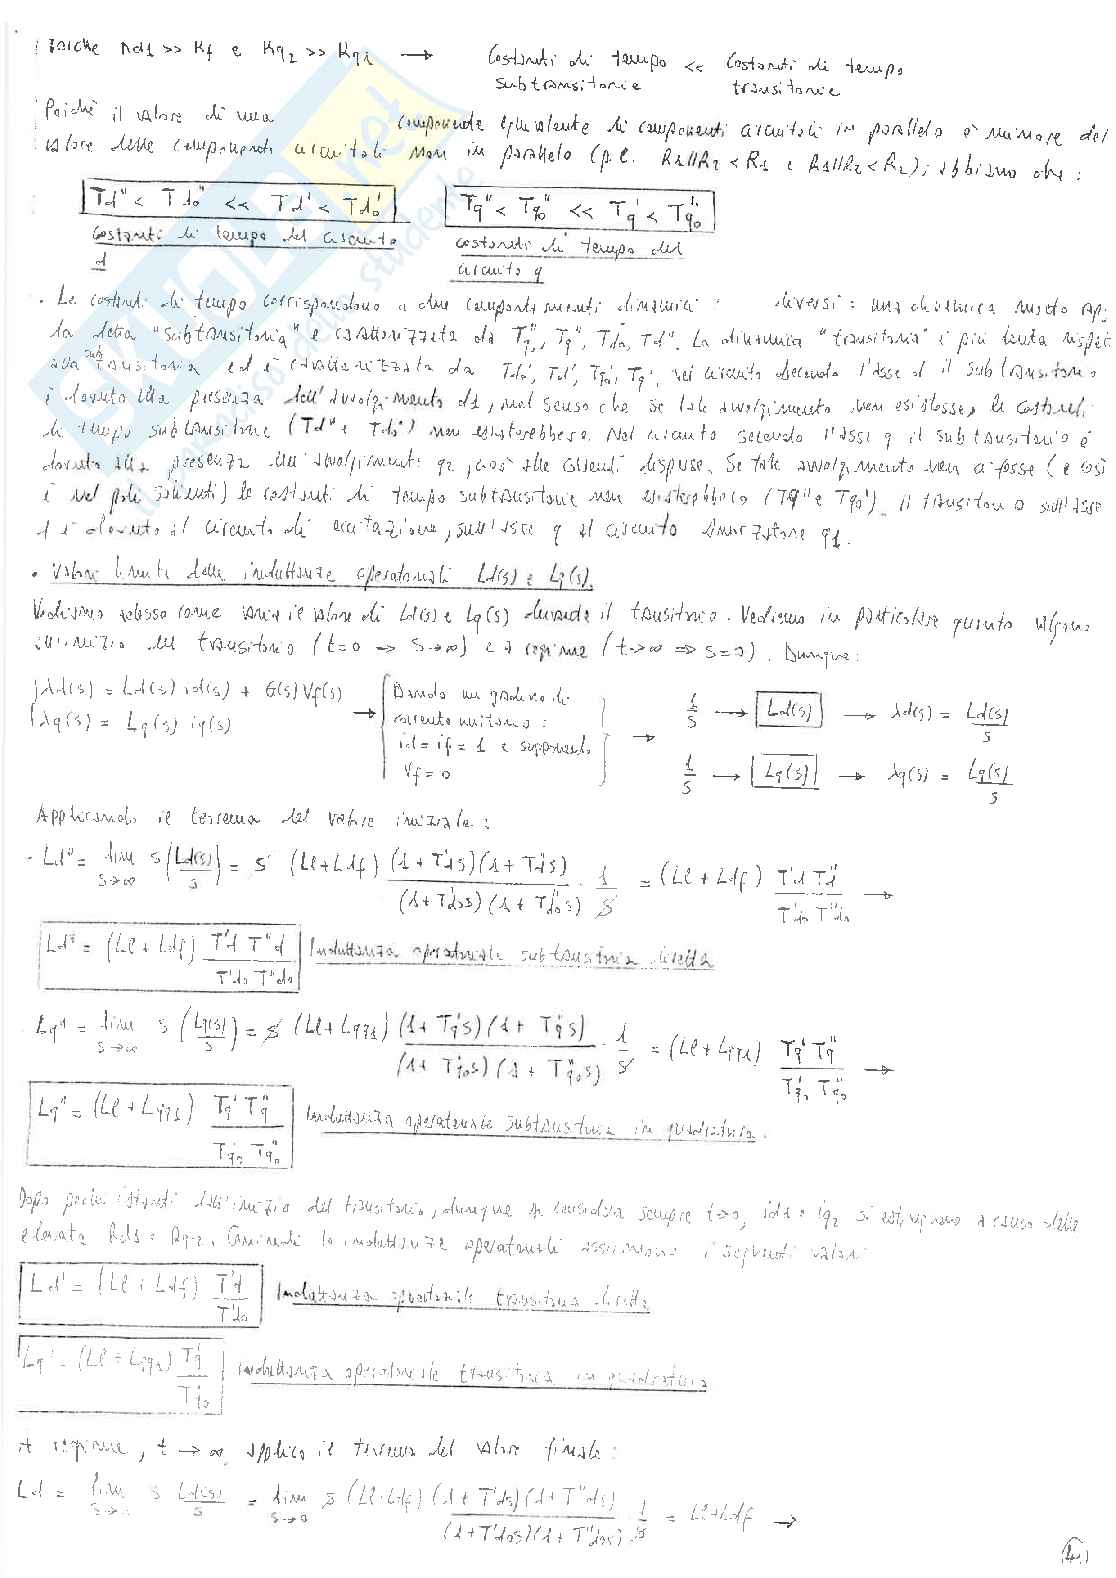 Poiché Rd1 >> Rf e Rq2 >> Rq1 → Costanti di tempo << Costanti di tempo
subtransitorie transitorie
Poiché il valore di una componente equivalente di componenti circuitali in parallelo è minore del
valore delle componenti circuitali non in parallelo (p.e. R1//R2 < R1 e R1//R2 < R2); abbiamo che:
Td'' < Tdo'' << Td' < Tdo' Tq'' < Tqo'' << Tq' < Tqo'
Costanti di tempo del circuito Costanti di tempo del
d circuito q
. Le costanti di tempo corrispondono a due comportamenti dinamici diversi: una dinamica molto
la detta "subtransitoria" e caratterizzata da Tqo'', Tq'', Tdo'', Td''. La dinamica "transitoria" è più lenta rispet
alla subtransitoria ed è caratterizzata da Tdo', Td', Tqo', Tq'. Nel circuito secondo l'asse d il subtransitorio
è dovuto alla presenza dell'avvolgimento d1, nel senso che se tale avvolgimento non esistesse, le costanti
di tempo subtransitorie (Td'' e Tdo'') non esisterebbero. Nel circuito secondo l'asse q il subtransitorio è
dovuto alla presenza dell'avvolgimento q2, Se tale avvolgimento non ci fosse (e così
è nel poli salienti) le costanti di tempo subtransitorie non esisterebbero (Tq'' e Tqo''). Il transitorio sull'asse
d è dovuto al circuito di eccitazione, sull'asse q al circuito smorzatore q1.
. Valore limite delle induttanze operatoriali Ld(s) e Lq(s).
Vediamo adesso come varia il valore di Ld(s) e Lq(s) durante il transitorio. Vediamo in particolare quanto valgono
all'inizio del transitorio (t=0 ⇒ s→∞) e a regime (t→∞ ⇒ s=0). Dunque:
λd(s) = Ld(s) id(s) + G(s) Vf(s) → Dando un gradino di 1/s → Ld(s) → λd(s) = Ld(s)/s
λq(s) = Lq(s) iq(s) corrente unitario: →
id = if = 1 e supponendo 1/s → Lq(s) → λq(s) = Lq(s)/s
Vf = 0
Applicando il teorema del valore iniziale:
. Ld'' = lim s→∞ s (Ld(s)/s) = s (Ll+Ldf) (1+T'd s)(1+T''d s)/(1+T'do s)(1+T''do s) · 1/s = (Ll+Ldf) T'd T''d / T'do T''do →
Ld'' = (Ll+Ldf) T'd T''d / T'do T''do Induttanza operatoriale subtransitoria diretta
. Lq'' = lim s→∞ s (Lq(s)/s) = s (Ll+Lqq1) (1+Tq's)(1+Tq''s)/(1+Tqo's)(1+Tqo''s) · 1/s = (Ll+Lqq1) Tq' Tq'' / Tqo' Tqo'' →
Lq'' = (Ll+Lqq1) Tq' Tq'' / Tqo' Tqo'' Induttanza operatoriale subtransitoria in quadratura.
Dopo pochi istanti dall'inizio del transitorio, dunque si considera sempre t→0, id1 e iq2 si estinguono a causa delle
elevate Rd1 e Rq2. Quindi le induttanze operatoriali assumono i seguenti valori
Ld' = (Ll+Ldf) T'd / T'do Induttanza operatoriale transitoria diretta
Lq' = (Ll+Lqq1) Tq' / Tqo' Induttanza operatoriale transitoria in quadratura
A regime, t→∞, applico il teorema del valore finale:
Ld = lim s→0 s Ld(s)/s = lim s→0 s (Ll+Ldf) (1+T'd s)(1+T''d s)/(1+T'do s)(1+T''do s) · 1/s = Ll+Ldf →